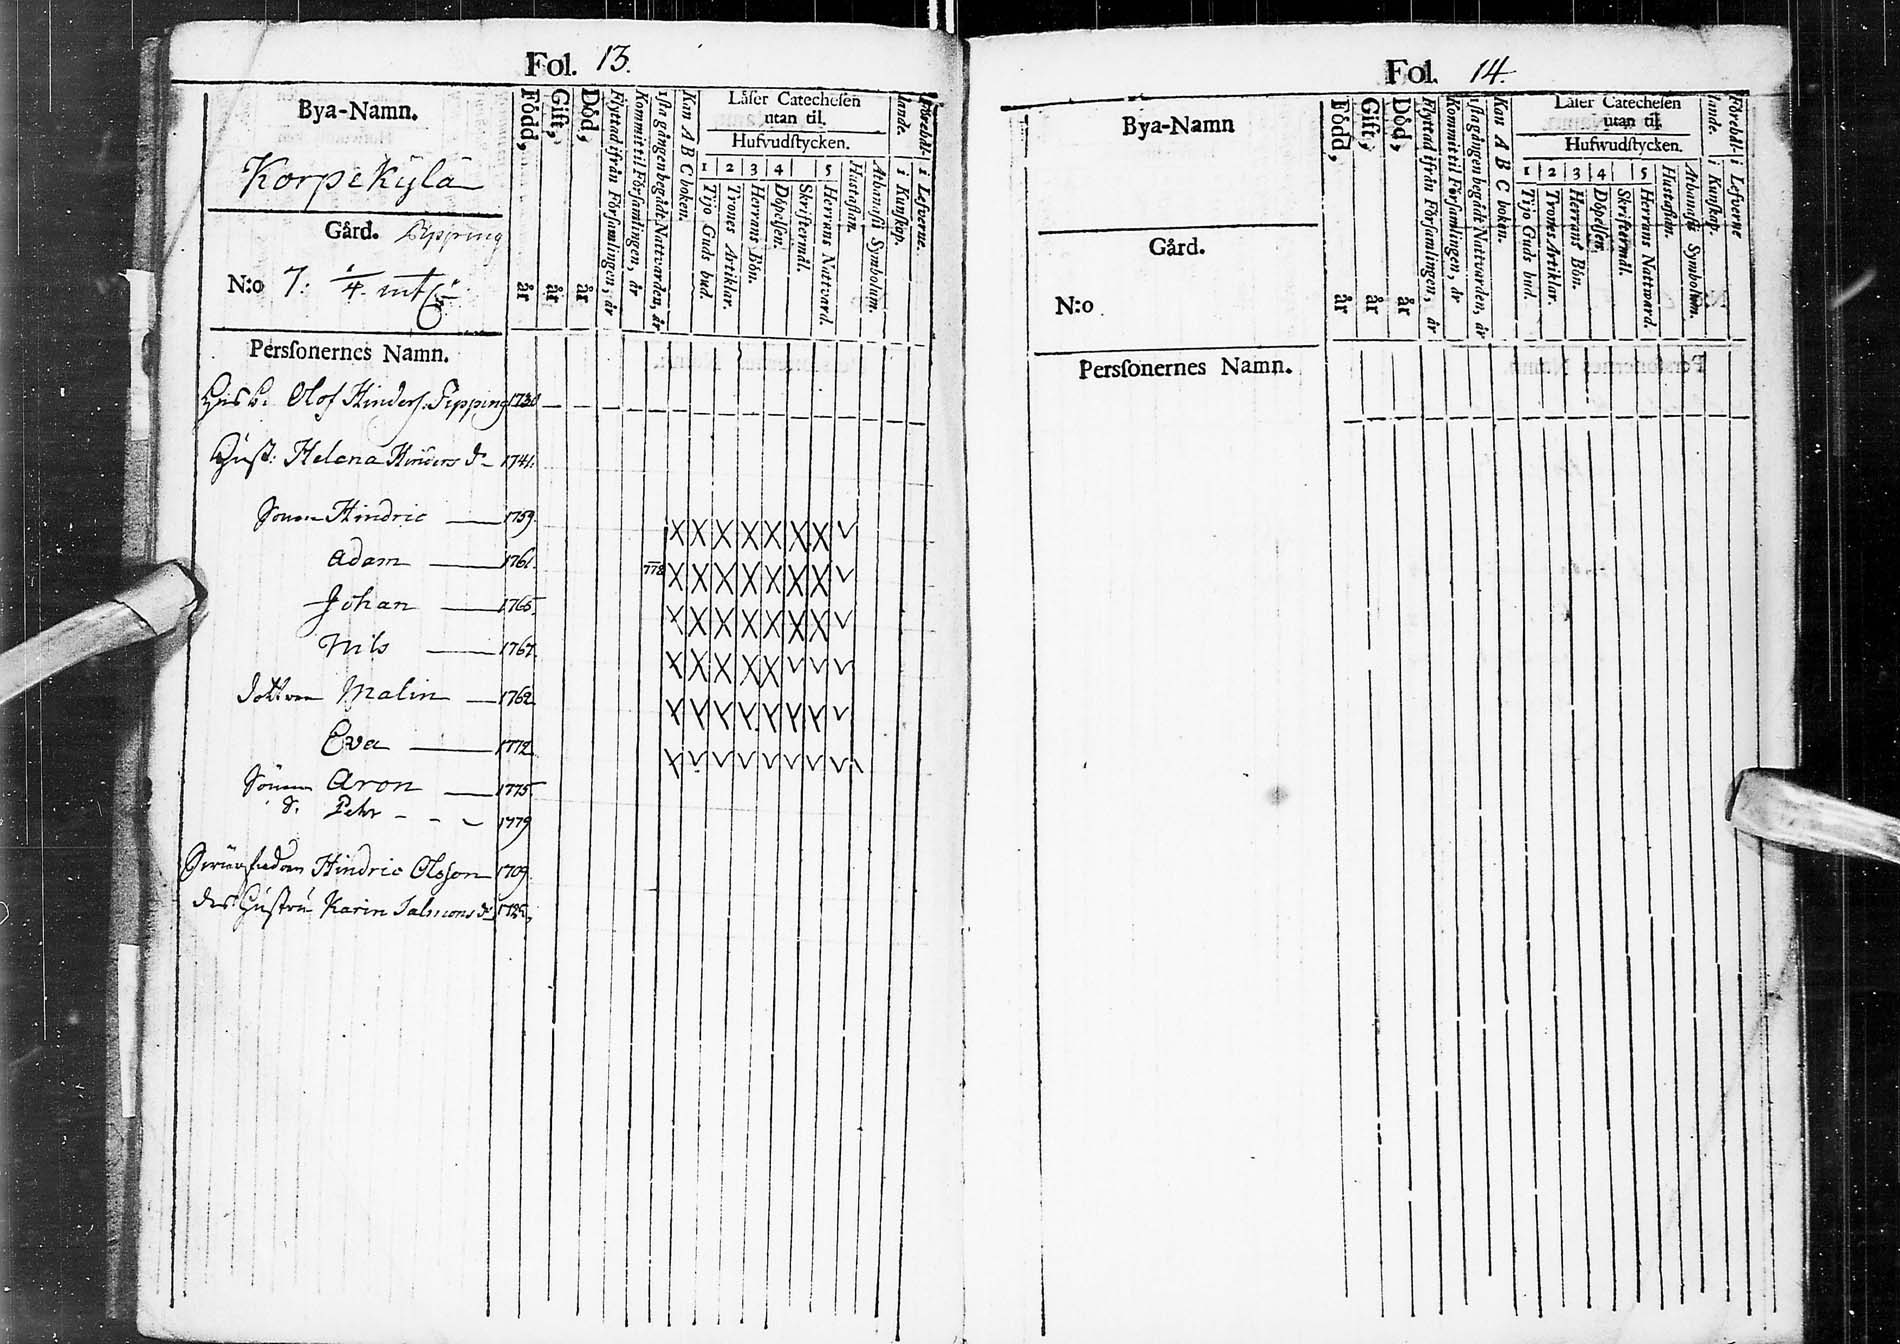 Fol. 13.
Bya-Namn.
Korpikylä
Gård. Pipping
N:o 7: 1/4. mtl
Född, år
Gift, år
Död, år
Flyttad ifrån Församlingen, år
Kommit til Församlingen, år
1sta gången begådt Nattvarden, år
Kan A B C boken.
Låser Catechesen utan til.
Hufvudstycken.
1 Tijo Guds bud.
2 Trones Artiklar.
3 Herrans Bön.
4 Döpelsen.
Skriftermål.
5 Herrans Nattvard.
Hustaflan.
Athanasii Symbolum.
i Kunskap.
i Lefverne.
Perssonernes Namn.
Olof Hinders. Pipping 1730
Hust: Helena Hinders dr 1741.
Sonen Hindric 1759.
Adam 1761.
Johan 1765.
778
Nils 1767.
Dottren Malin 1762
Eva 1772
Sonen Aron 1775
S. Pehr 1779
Hindric Olsson 1709
des Hustru Karin Salmons dr
Fol. 14.
Bya-Namn
Gård.
N:o
Född, år
Gift, år
Död, år
Flyttad ifrån Församlingen, år
Kommit til Församlingen, år
1sta gången begådt Nattvarden, år
Kan A B C boken.
Låser Catechesen utan til.
Hufwudstycken.
1 Tijo Guds bud.
2 Trones Artiklar.
3 Herrans Bön.
4 Döpelsen.
Skriftermål.
5 Herrans Nattward.
Hustaflan.
Athanasii Symbolum.
i Kunskap.
i Lefverne
Perssonernes Namn.